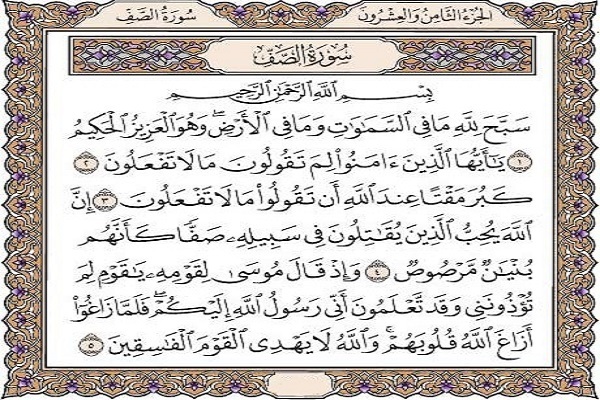 الجزء الثامن والعشرون سورة الصف
سُورَةُ الصَّفِّ
بِسْمِ اللَّهِ الرَّحْمَٰنِ الرَّحِيمِ
سَبَّحَ لِلَّهِ مَا فِي السَّمَٰوَٰتِ وَمَا فِي الْأَرْضِ ۖ وَهُوَ الْعَزِيزُ الْحَكِيمُ
١ يَٰٓأَيُّهَا الَّذِينَ ءَامَنُوا لِمَ تَقُولُونَ مَا لَا تَفْعَلُونَ ٢
كَبُرَ مَقْتًا عِندَ اللَّهِ أَن تَقُولُوا مَا لَا تَفْعَلُونَ ٣ إِنَّ
اللَّهَ يُحِبُّ الَّذِينَ يُقَٰتِلُونَ فِي سَبِيلِهِۦ صَفًّا كَأَنَّهُم
بُنْيَٰنٌ مَّرْصُوصٌ ٤ وَإِذْ قَالَ مُوسَىٰ لِقَوْمِهِۦ يَٰقَوْمِ لِمَ
تُؤْذُونَنِي وَقَد تَّعْلَمُونَ أَنِّي رَسُولُ اللَّهِ إِلَيْكُمْ ۖ فَلَمَّا زَاغُوا
أَزَاغَ اللَّهُ قُلُوبَهُمْ ۚ وَاللَّهُ لَا يَهْدِي الْقَوْمَ الْفَٰسِقِينَ ٥